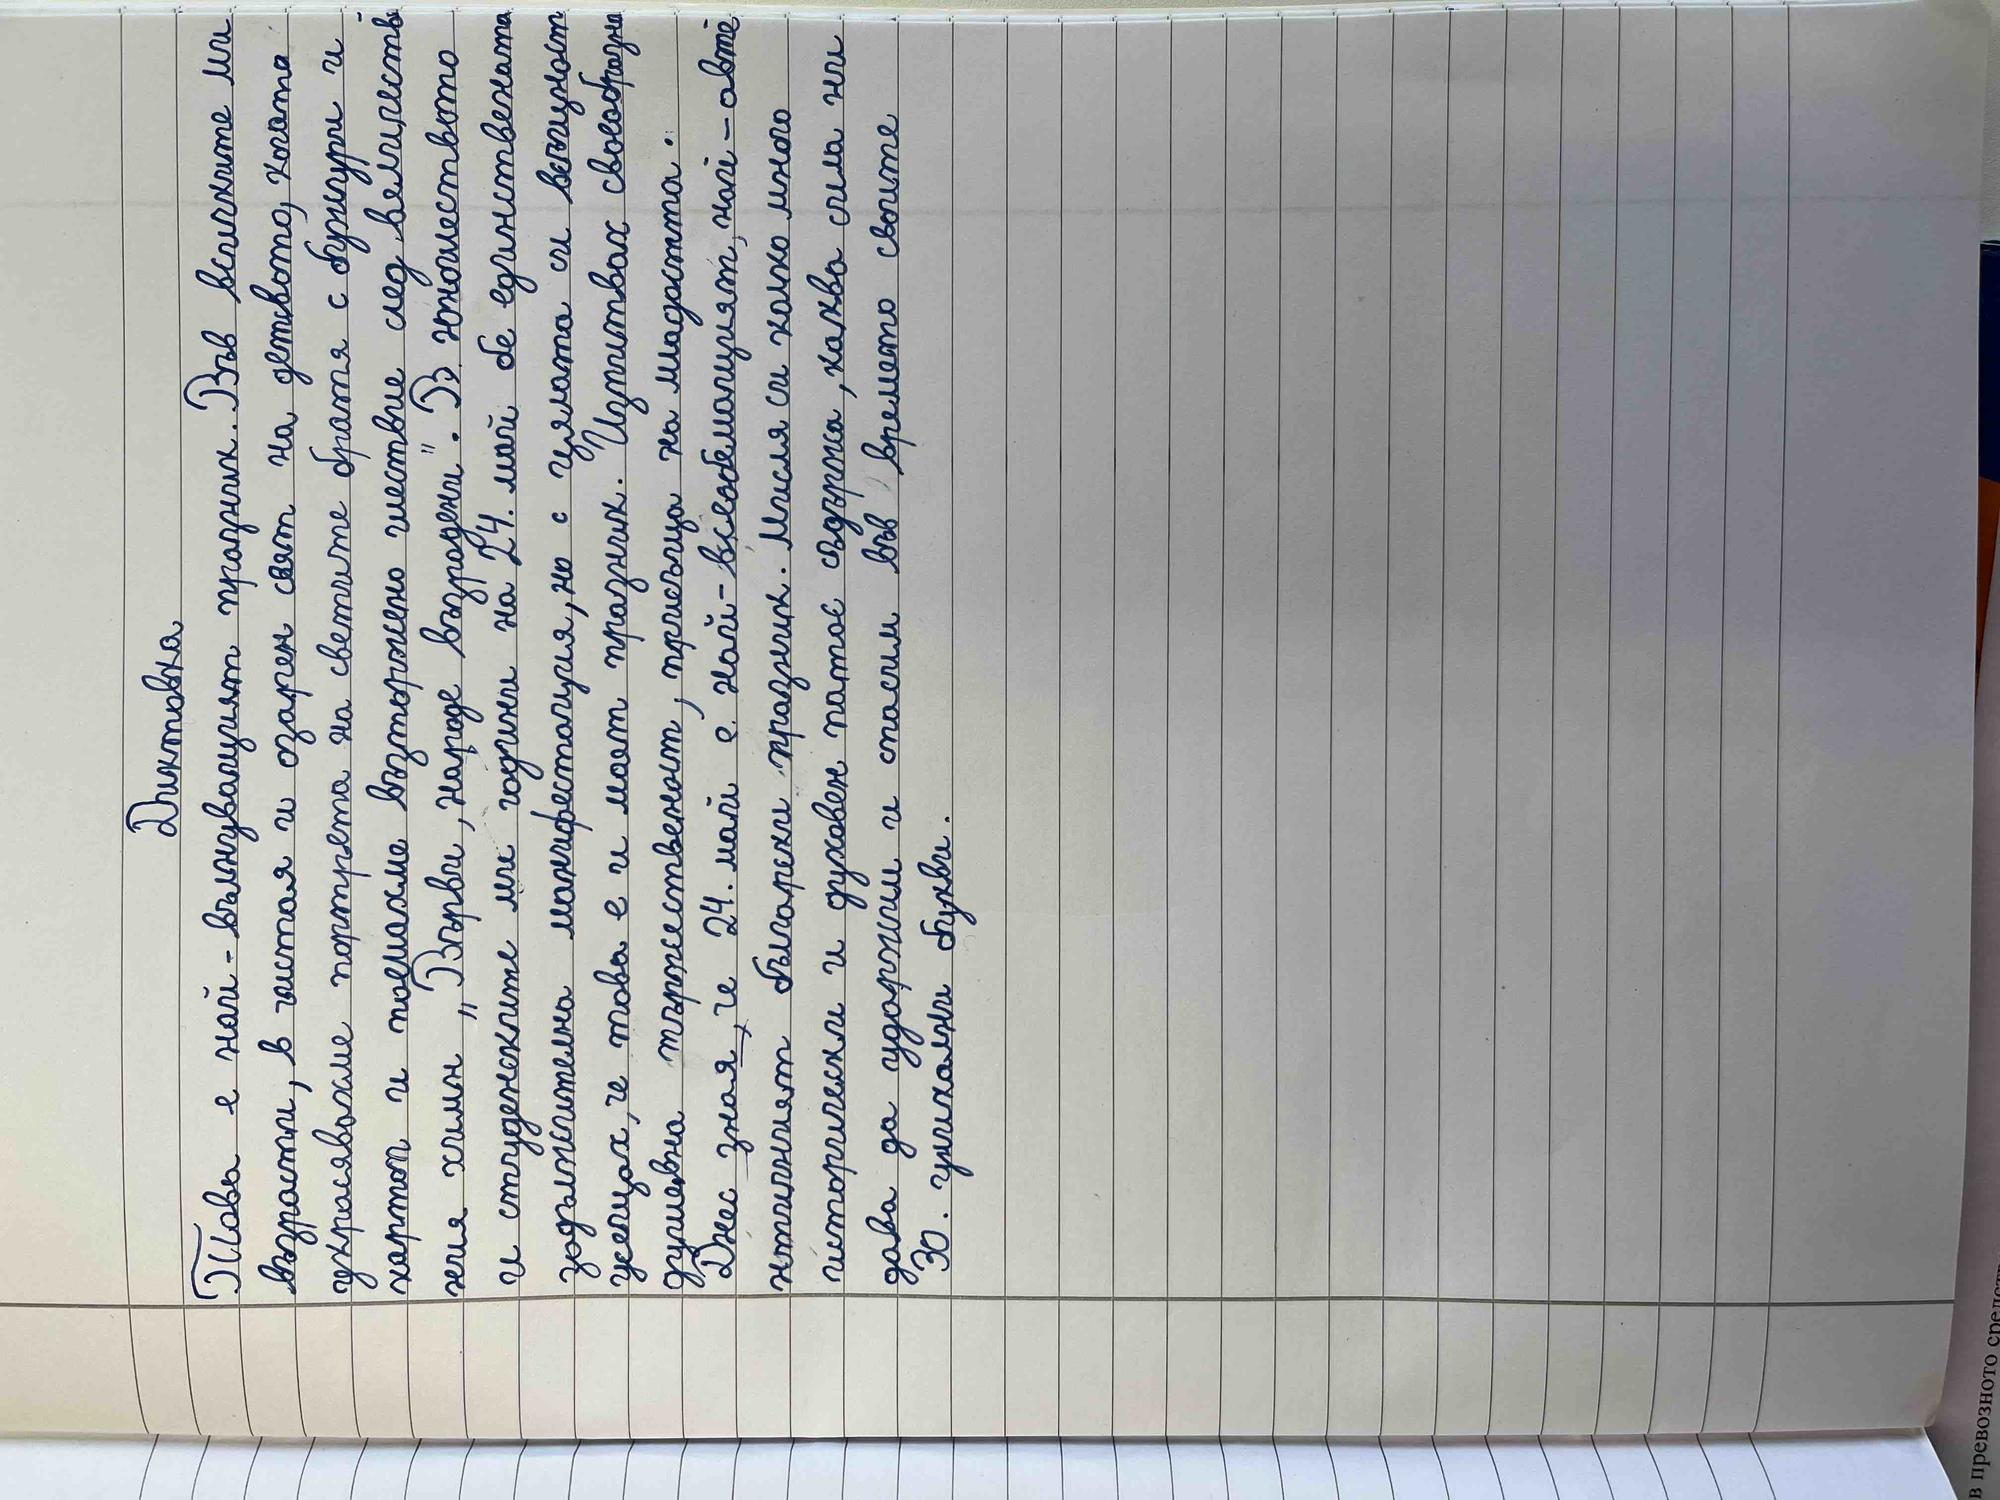 Диктовка
Това е най-вълнуващият празник. Във всичките ми
възрасти, в чистия и озарен свят на детството, когато
украсявахме портрета на светите братя с божури и
хартии и поемахме възторжено шествие след величестве
ния химн „Върви, народе възродени". В юношеството
и студенските ми години на 24. май бе единствената
задължителна манифестация, но с цялата си вещуност
усещах, че това е и моят празник. Изпитвах своеобразна
душевна тържественост, присъща на младостта.
Днес зная, че 24. май е най-всеобемащият, най-авте
нтичният български празник. Мисля си колко много
исторически и духовен патос съдържа, каква сила ни
дава да удържим и спасим във времето своите
30. уникални букви.
в превозното средств